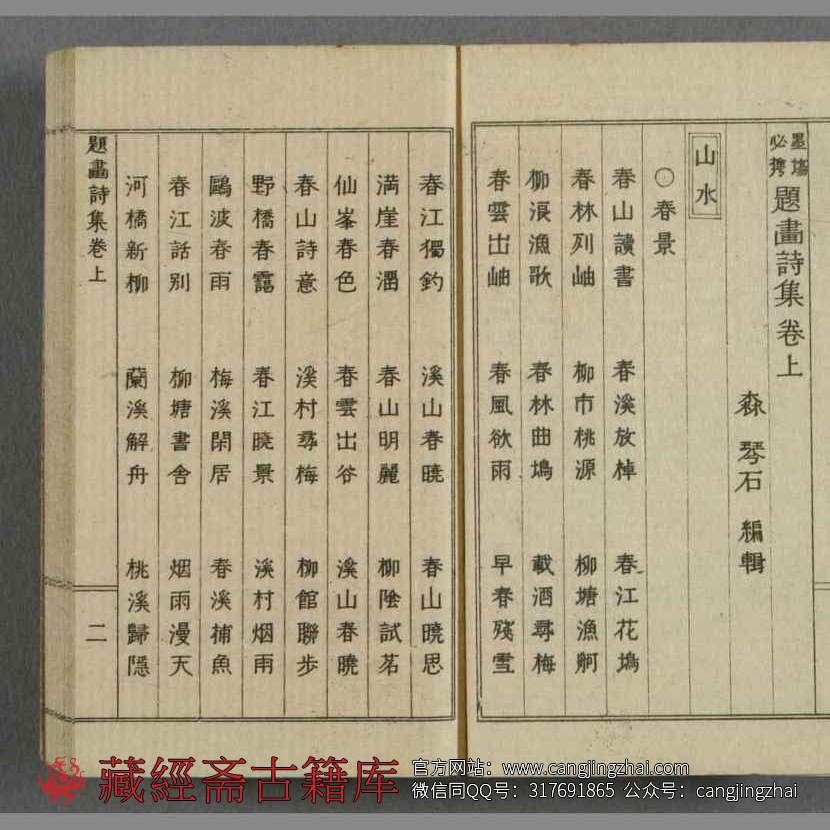 墨場必携 題畫詩集 卷上
森 琴石 編輯
山水
○春景
春山讀書 春溪放棹 春江花塢
春林列岫 柳市桃源 柳塘漁舸
柳浪漁歌 春林曲塢 載酒尋梅
春雲出岫 春風欲雨 早春殘雪
春江獨釣 溪山春曉 春山曉思
満崖春溜 春山明麗 柳陰試茗
仙峯春色 春雲出谷 溪山春曉
春山詩意 溪村尋梅 柳館聯步
野橋春靄 春江曉景 溪村烟雨
鷗波春雨 梅溪閑居 春溪捕魚
春江話別 柳塘書舎 烟雨漫天
河橋新柳 蘭溪解舟 桃溪歸隱
題畫詩集卷上 二
藏經斋古籍库
官方网站：www.cangjingzhai.com
微信同QQ号：317691865 公众号：cangjingzhai